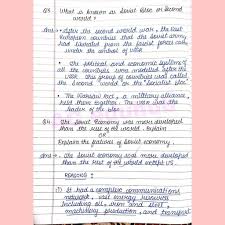 Q3. What is known as Soviet bloc or Second
world?
Ans → After the second world war, the East
European countries that the Soviet army
had liberated from the fascist forces came
under the control of USSR.
• The political and economic systems of
all the countries were modelled after the
USSR. This group of countries was called
the Second World or the "Socialist bloc".
• The Warsaw Pact, a military alliance,
held them together. The USSR was the
leader of the bloc.
Q4. The Soviet Economy was more developed
than the rest of the world. Explain
OR
Explain the features of Soviet economy.
Ans → The Soviet economy was more developed
than the rest of the world except US.
REASONS:
(1) It had a complex communications
network, vast energy resources
including oil, iron and steel,
machinery production, and transport